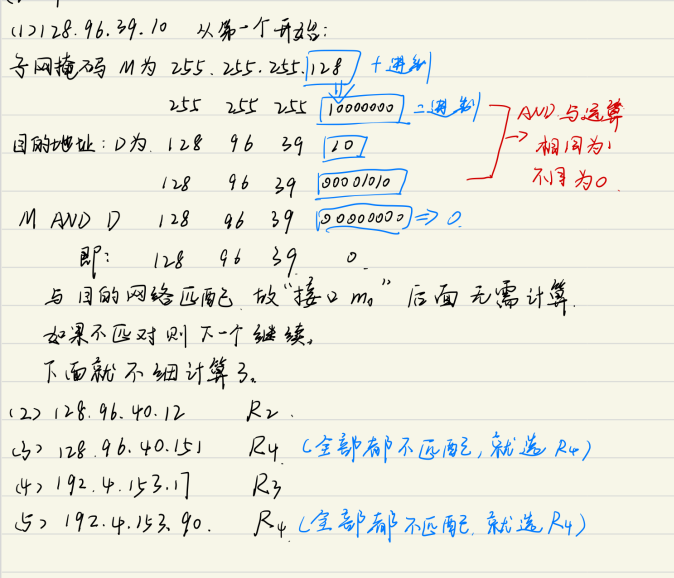 (1) 128.96.39.10 从第一个开始:
子网掩码 M为 255.255.255.128 十进制
255 255 255 10000000 二进制
AND 与运算
相同为1
不同为0.
目的地址: D为 128 96 39 10
128 96 39 00001010
M AND D 128 96 39 00000000 ⇒ 0.
即: 128 96 39 0
与目的网络匹配 故“接口m0” 后面无需计算.
如果不匹对则下一个继续.
下面就不细计算了.
(2) 128.96.40.12 R2.
(3) 128.96.40.151 R4 (全部都不匹配,就选R4)
(4) 192.4.153.17 R3
(5) 192.4.153.90. R4 (全部都不匹配.就选R4)